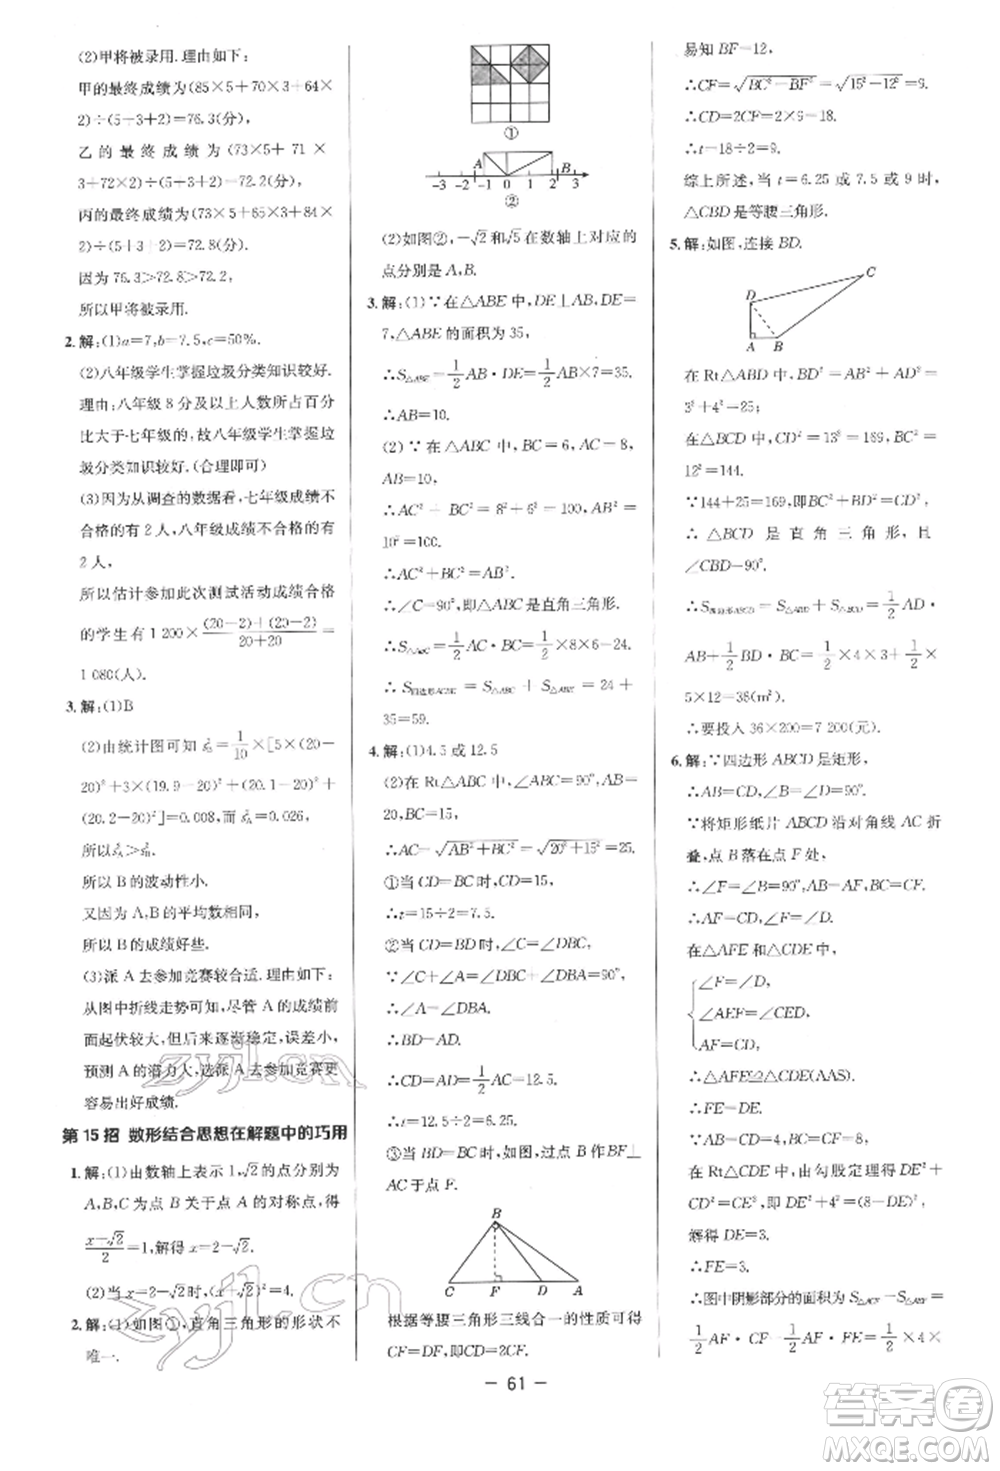 (2)甲将被录用.理由如下:
甲的最终成绩为(85×5+70×3+64×
2)÷(5+3+2)=76.3(分),
乙的最终成绩为(73×5+71×
3+72×2)÷(5+3+2)=72.2(分),
丙的最终成绩为(73×5+65×3+84×
2)÷(5+3+2)=72.8(分).
因为 76.3>72.8>72.2,
所以甲将被录用.
2.解:(1)a=7,b=7.5,c=50%.
(2)八年级学生掌握垃圾分类知识较好.
理由:八年级 8 分及以上人数所占百分
比大于七年级,故八年级学生掌握垃
圾分类知识较好.(合理即可)
(3)因为从调查的数据看,七年级成绩不
合格的有 2 人,八年级成绩不合格的有
2 人,
所以估计参加此次测试活动成绩合格
的学生有 1 200×(20-2)+(20-2)/20+20=
1 080(人).
3.解:(1)B
(2)由统计图可知 s²=1/10×[5×(20-
20)²+3×(19.9-20)²+(20.1-20)²+
(20.2-20)²]=0.008,而 s²=0.026,
所以 s²A>s²B.
所以 B 的波动性小.
又因为 A,B 的平均数相同,
所以 B 的成绩好些.
(3)派 A 去参加竞赛较合适.理由如下:
从图中折线走势可知,尽管 A 的成绩前
面起伏较大,但后来逐渐稳定,误差小,
预测 A 的潜力大,选派 A 参加竞赛更
容易出好成绩.
第 15 招 数形结合思想在解题中的巧用
1.解:(1)由数轴上表示 1,√2的点分别为
A,B,C 为点 B 关于点 A 的对称点,得
x+√2/2=1,解得 x=2-√2.
(2)当 x=2-√2时,(x+√2)²=4.
2.解:(1)如图①,直角三角形的形状不
唯一.
①
A B
-3 -2 -1 0 1 2 3
②
(2)如图②,-√2和√5在数轴上对应的
点分别是 A,B.
3.解:(1)∵在△ABE 中,DE⊥AB,DE=
7,△ABE 的面积为 35,
∴S△ABE=1/2AB·DE=1/2AB×7=35.
∴AB=10.
(2)∵在△ABC 中,BC=6,AC=8,
AB=10,
∴AC²+BC²=8²+6²=100,AB²=
10²=100.
∴AC²+BC²=AB².
∴∠C=90°,即△ABC 是直角三角形.
∴S△ABC=1/2AC·BC=1/2×8×6=24.
∴S四边形ACBE=S△ABC+S△ABE=24+
35=59.
4.解:(1)4.5 或 12.5
(2)在 Rt△ABC 中,∠ABC=90°,AB=
20,BC=15,
∴AC=√AB²+BC²=√20²+15²=25.
①当 CD=BC 时,CD=15,
∴t=15÷2=7.5.
②当 CD=BD 时,∠C=∠DBC.
∵∠C+∠A=∠DBC+∠DBA=90°,
∴∠A=∠DBA.
∴BD=AD.
∴CD=AD=1/2AC=12.5.
∴t=12.5÷2=6.25.
③当 BD=BC 时,如图,过点 B 作 BF⊥
AC 于点 F.
B
C F D A
根据等腰三角形三线合一的性质可得
CF=DF,即CD=2CF.
易知 BF=12,
∴CF=√BC²-BF²=√15²-12²=9.
∴CD=2CF=2×9=18.
∴t=18÷2=9.
综上所述,当 t=6.25 或 7.5 或 9 时,
△CBD 是等腰三角形.
5.解:如图,连接 BD.
C
D
A B
在 Rt△ABD 中,BD²=AB²+AD²=
3²+4²=25;
在△BCD 中,CD²=13²=169,BC²=
12²=144.
∵144+25=169,即BC²+BD²=CD²,
∴△BCD 是直角三角形,且
∠CBD=90°.
∴S四边形ABCD=S△BAD+S△DBC=1/2AD·
AB+1/2BD·BC=1/2×4×3+1/2×
5×12=36(m²).
∴要投入 36×200=7 200(元).
6.解:∵四边形 ABCD 是矩形,
∴AB=CD,∠B=∠D=90°.
∵将矩形纸片 ABCD 沿对角线 AC 折
叠,点 B 落在点 F 处,
∴∠F=∠B=90°,AB=AF.
∴AF=CD,∠F=∠D.
在△AFE 和△CDE 中,
∠F=∠D,
∠AEF=∠CED,
AF=CD,
∴△AFE≌△CDE(AAS).
∴FE=DE.
∵AB=4,∴CD=4.
在 Rt△CDE 中,由勾股定理得 DE²+
CD²=CE²,即DE²+4²=(8-DE)²,
解得 DE=3.
∴FE=3.
∴图中阴影部分的面积为 S△ACF-S△AEF=
1/2AF·CF-1/2AF·FE=1/2×4×
- 61 -
zyjl.cn
zyjl.cn
答案圈
MXQE.COM